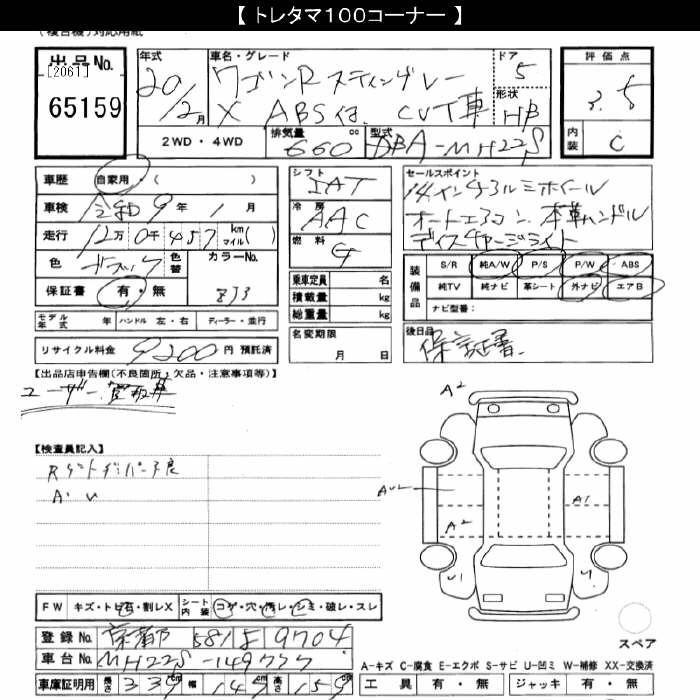 【 トレタマ100コーナー 】
出品No.
[2061]
65159
年式
20/2月
車名・グレード
ワゴンR スティングレー
X ABS付、CVT車
ドア
5
形状
HB
2WD・4WD
排気量 660 cc
型式 DBA-MH22S
評価点
3.5
内装
C
車歴 自家用・( )
車検 令和9年1月
走行 12万0千457 km マイル( )
色 ブラック 色替 カラーNo.
保証書 有・無 ZJ3
モデル年式 年 ハンドル 左・右 ディーラー・並行
リサイクル料金 9200円 預託済
シフト
IAT
冷房
AAC
燃料
G
乗車定員 名
積載量 kg
総重量 kg
名変期限
月 日
セールスポイント
14インチアルミホイール
オートエアコン、本革ハンドル
ディスチャージライト
装備品
S/R 純A/W P/S P/W ABS
純TV 純ナビ 革シート 外ナビ エアB
ナビ型番:
後日品
保証書、
【出品店申告欄(不良箇所・欠品・注意事項等)】
ユーザー買取車
【検査員記入】
A・U
A2
AU2
A2
A1
U1
FW キズ・トビ石・割レX シート内装 コゲ・穴・汚レ・シミ・破レ・スレ
登録No. 京都 581 9704
車台No. MH22S-149777
車庫証明用 長さ 339cm 幅 147cm 高さ 159cm
スペア
A-キズ C-腐食 E-エクボ S-サビ U-凹ミ W-補修 XX-交換済
工具 有・無 ジャッキ 有・無